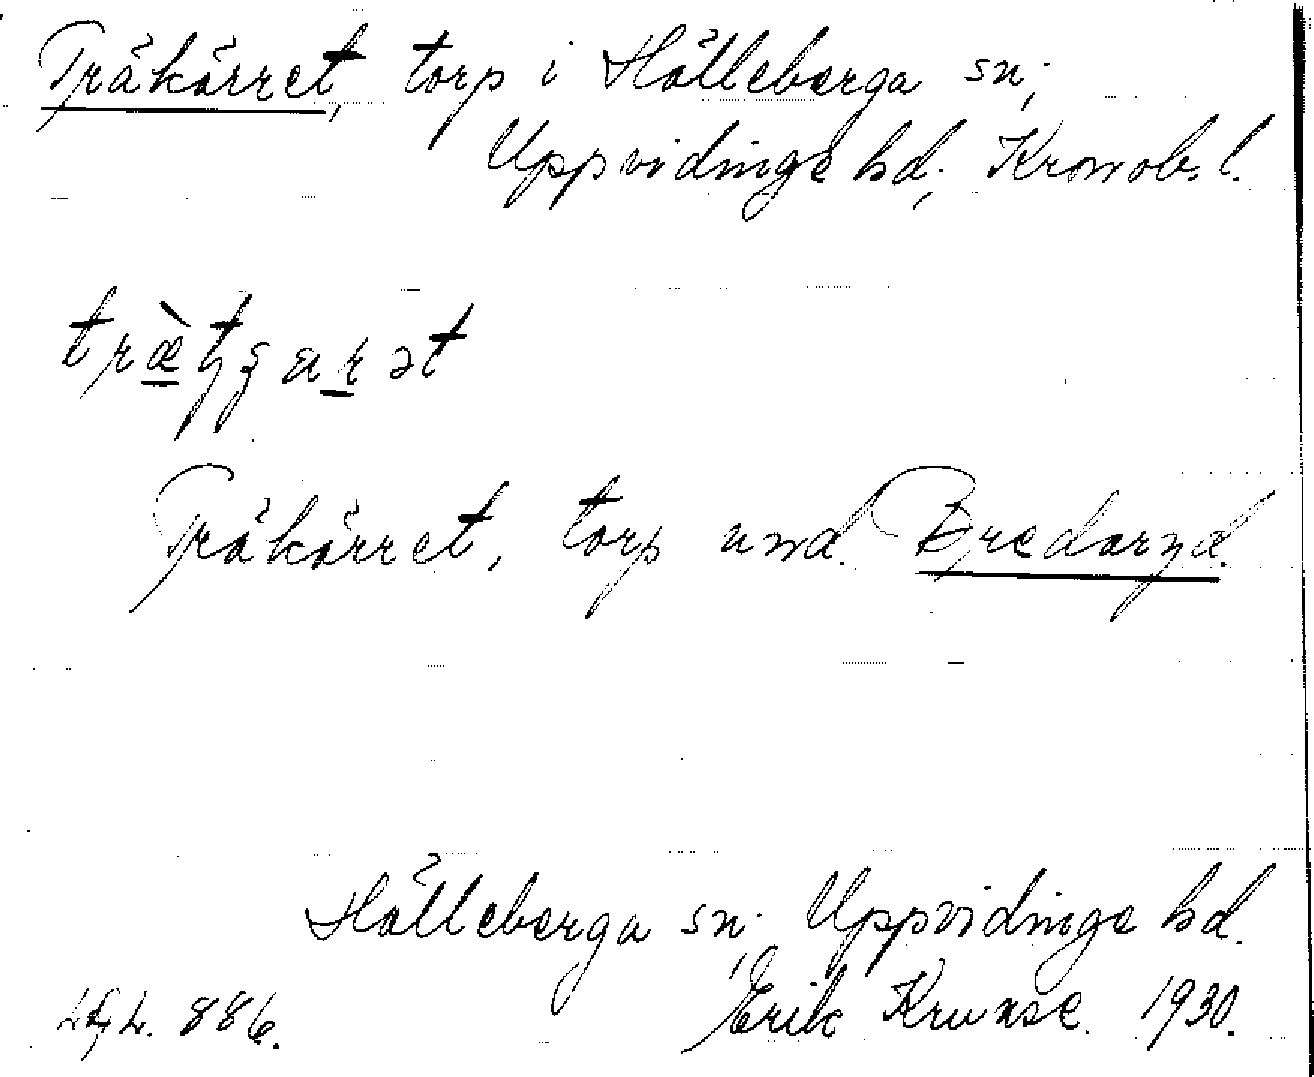 Träkärret, torp i Hälleberga sn;
Uppvidinge hd; Kronob. l.
Träkärret, torp und. Bredaryd.
Hälleberga sn; Uppvidinge hd.
886. Erik Kruuse. 1930.